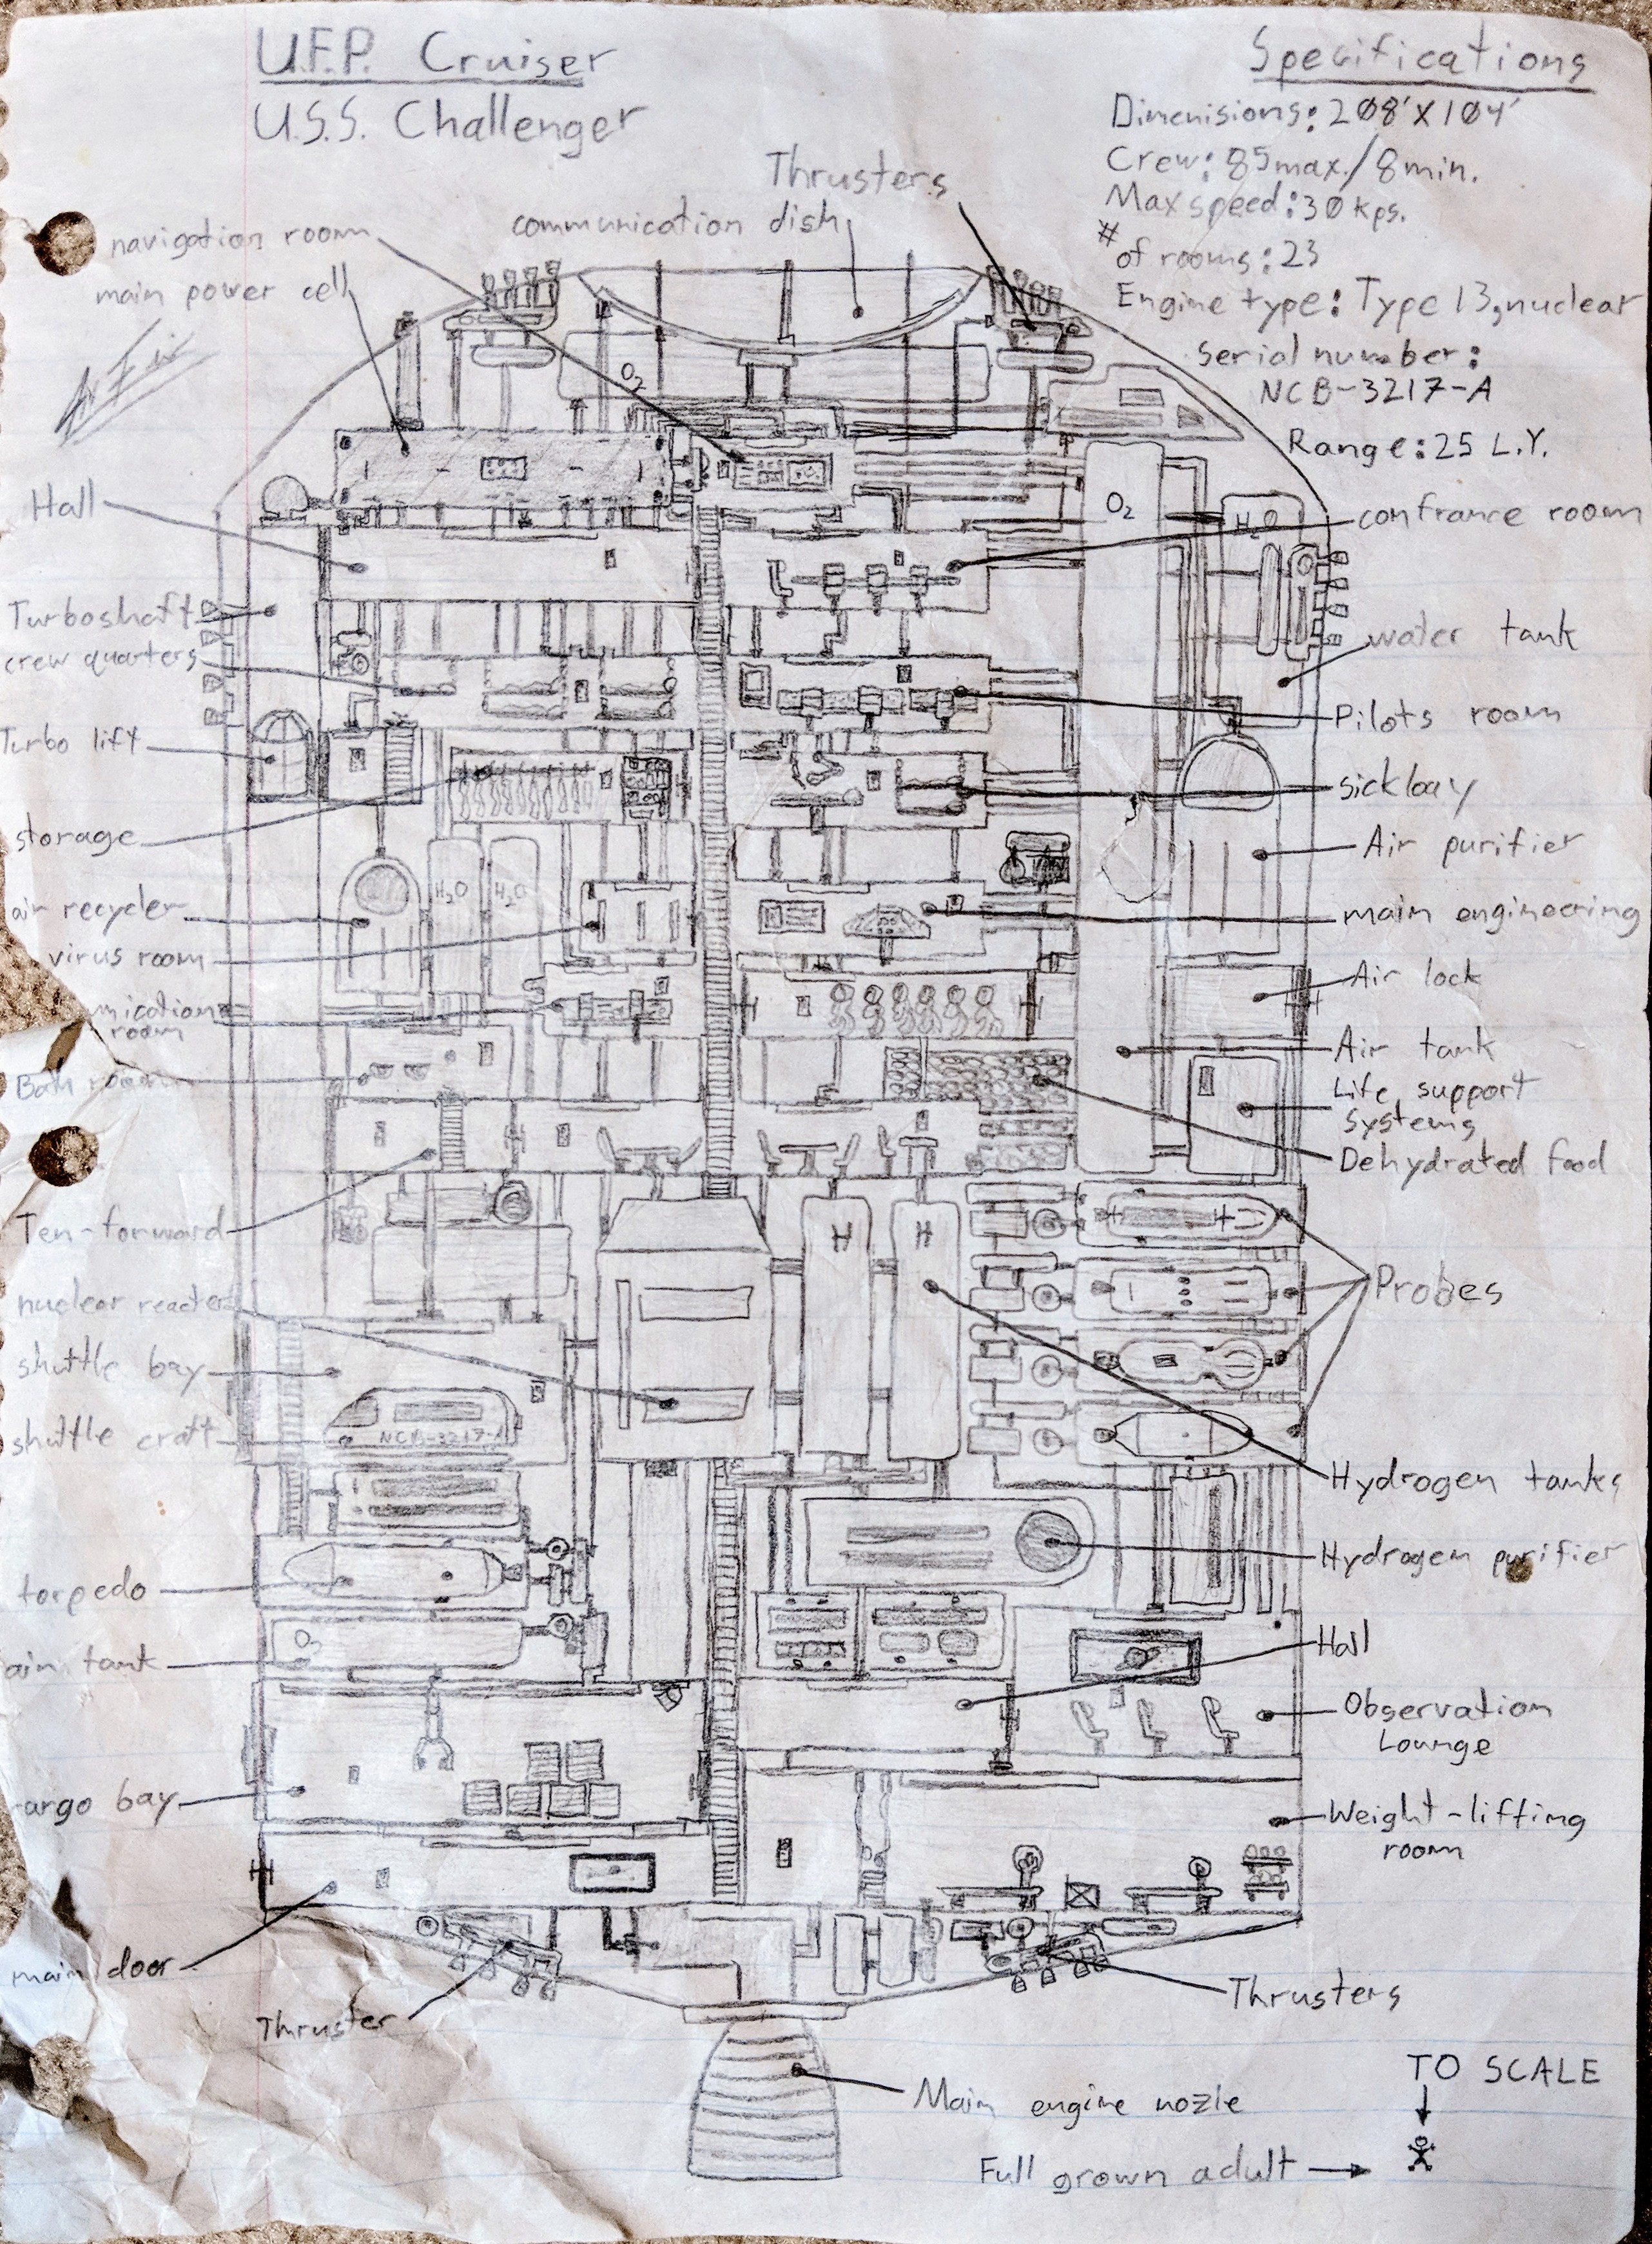 U.F.P. Cruiser
U.S.S. Challenger
Specifications
Dimenisions: 208' X 104'
Crew: 85max./8min.
Max speed: 30 kps.
# of rooms: 23
Engine type: Type 13, nuclear
Serial number:
NCB-3217-A
Range: 25 L.Y.
Thrusters
communication dish
navigation room
main power cell
Hall
Turboshaft
crew quarters
Turbo lift
storage
air recycler
virus room
room
Bath room
Ten-forward
nuclear reacter
shuttle bay
shuttle craft
torpedo
air tank
argo bay
main door
Thruster
confrance room
water tank
Pilots room
sickbay
Air purifier
main engineering
Air lock
Air tank
Life support
systems
Dehydrated food
Probes
Hydrogen tanks
Hydrogen purifier
Hall
Observation
Lounge
Weight-lifting
room
Thrusters
Main engine nozle
TO SCALE
Full grown adult
O2
O2
H2O
H2O
H2O
H
H
NCB-3217-A
O2